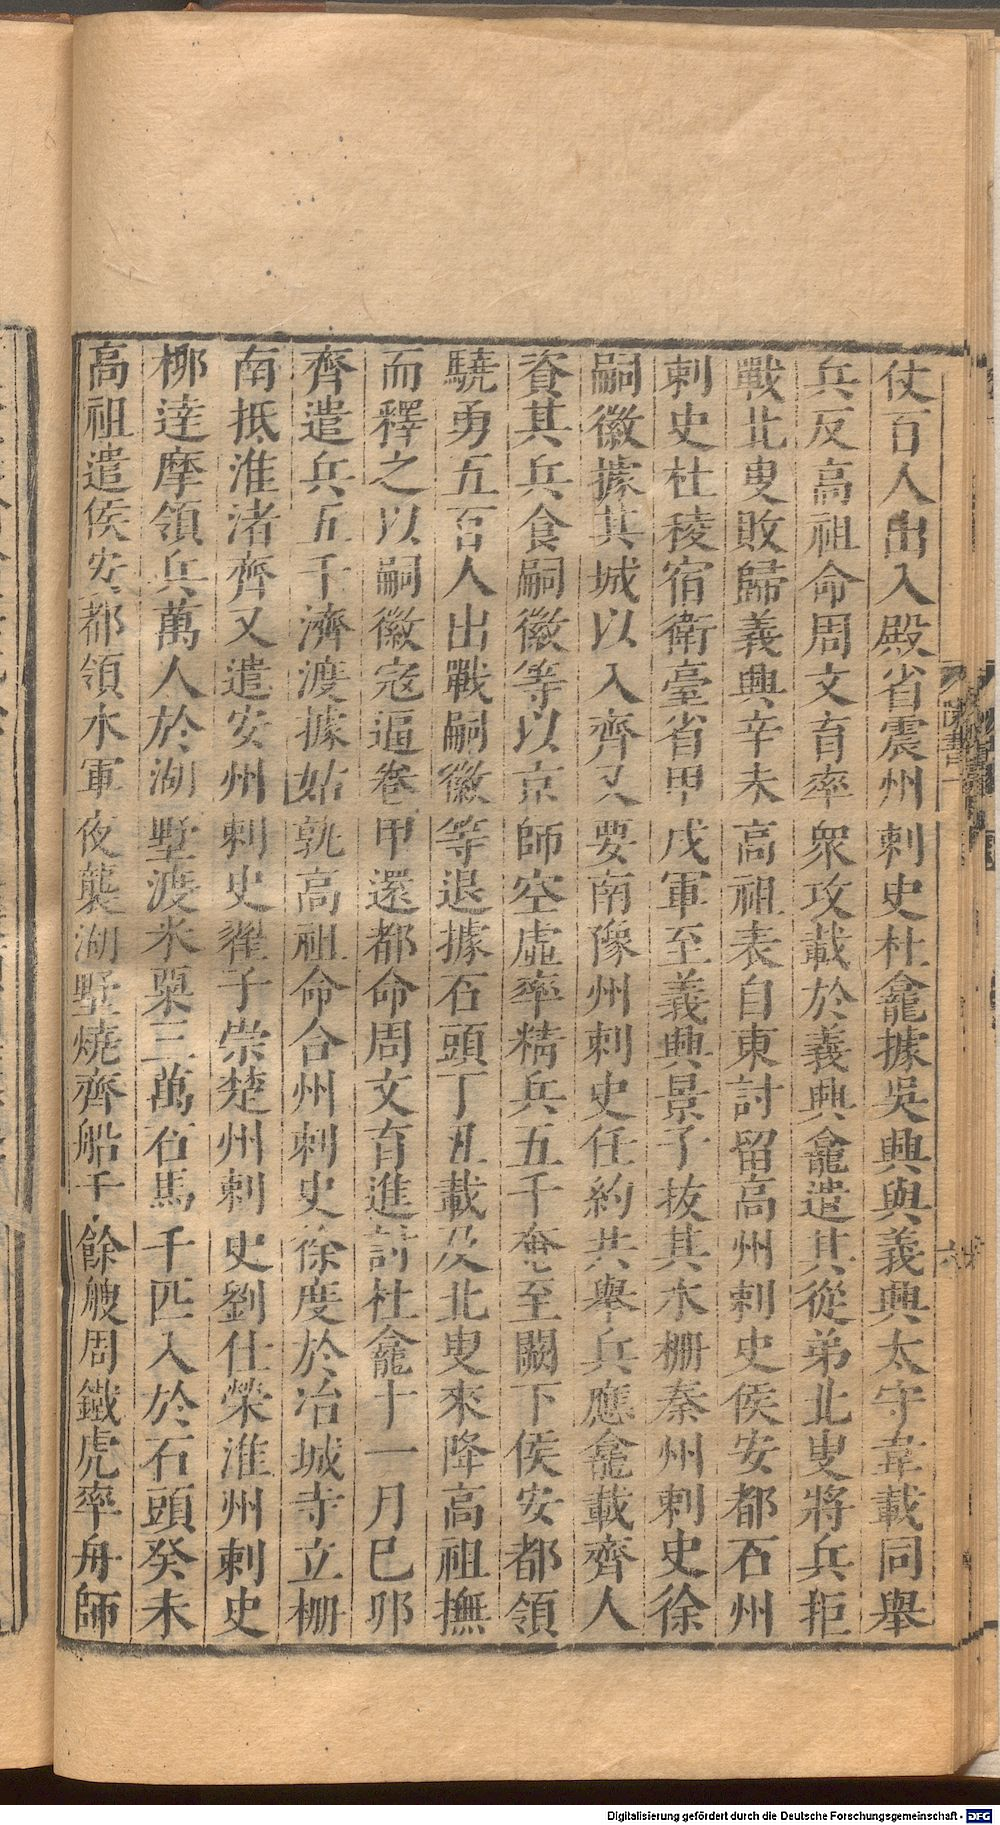 仗百人出入殿省震州刺史杜龕據吳興與義興太守韋載同舉
兵反高祖命周文育率衆攻載於義興龕遣其從弟北叟將兵拒
戰北叟敗歸義興辛未高祖表自東討留高州刺史侯安都石州
刺史杜稜宿衛臺省甲戌軍至義興景子拔其水柵秦州刺史徐
嗣徽據其城以入齊又要南豫州刺史任約共舉兵應龕載齊人
資其兵食嗣徽等以京師空虛率精兵五千奄至闕下侯安都領
驍勇五百人出戰嗣徽等退據石頭丁丑載及北叟來降高祖撫
而釋之以嗣徽寇逼卷甲還都命周文育進討杜龕十一月巳卯
齊遣兵五千濟渡據姑孰高祖命合州刺史徐度於冶城寺立柵
南抵淮渚齊又遣安州刺史翟子崇楚州刺史劉仕榮淮州刺史
柳達摩領兵萬人於湖墅渡米粟三萬石馬千匹入於石頭癸未
高祖遣侯安都領水軍夜襲湖墅燒齊船千餘艘周鐵虎率舟師
Digitalisierung gefördert durch die Deutsche Forschungsgemeinschaft - DFG